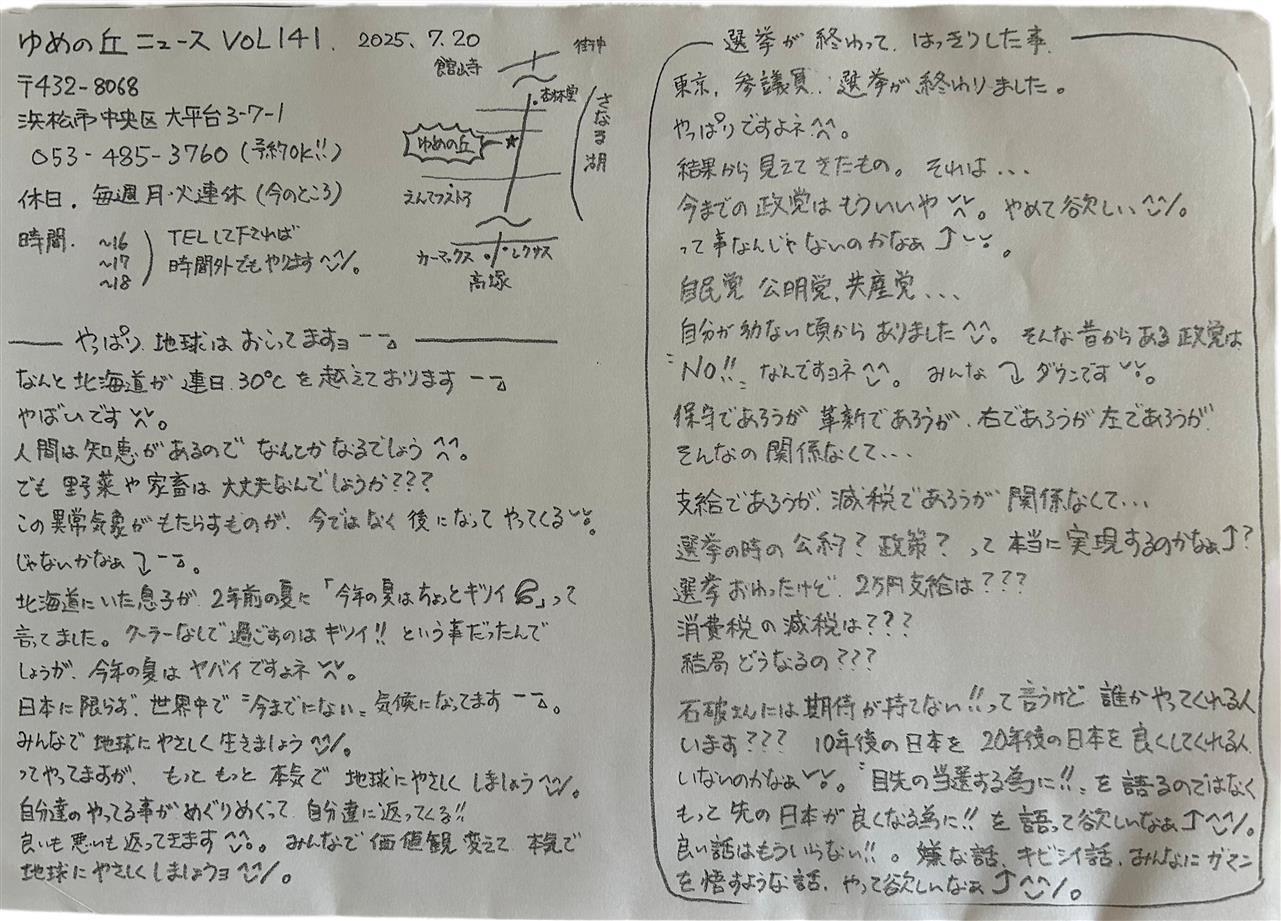 ゆめの丘 ニュース VOL141. 2025. 7.20
〒432-8068
浜松市中央区大平台3-7-1
053-485-3760 (予約OK!!)
休日. 毎週月・火連休 (今のところ)
時間. ~16
~17
~18
TELして下されば
時間外でもやります^^。
館山寺
街中
杏林堂
さなる湖
ゆめの丘
えんてつストア
カーマックス
レクサス
高塚
やっぱり、地球は おこってますョ
なんと 北海道が 連日、30℃ を 越えて おります
やばいです。
人間は 知恵が あるので なんとか なるでしょう ^^。
でも 野菜や 家畜は 大丈夫なんでしょうか???
この 異常気象が もたらすものが、今ではなく 後になって やってくる。
じゃないかなぁ ⤵。
北海道にいた息子が、2年前の夏に「今年の夏はちょっとキツイ」って
言てました。クーラーなしで 過ごすのは キツイ!! という事だったんで
しょうが、今年の夏は ヤバイですよネ。
日本に限らず、世界中で “今までにない” 気候になってます。
みんなで 地球にやさしく 生きましょう ^^。
ってやってますが、もっと もっと 本気で 地球にやさしく しましょう ^^。
自分達の やってる事が めぐりめぐって 自分達に返ってくる!!
良いも 悪いも 返ってきます ^^。 みんなで 価値観 変えて 本気で
地球に やさしく しましょうョ ^^。
選挙が 終わって、はっきりした事、
東京, 参議員, 選挙が 終わりました。
やっぱりですよネ ^^。
結果から 見えて きたもの。 それは...
今までの 政党は もういいや。 やめて 欲しい ^^。
って事なんじゃないのかなぁ ⤴。
自民党 公明党、共産党...
自分が 幼ない頃から ありました ^^。 そんな 昔からある 政党は
“No!!” なんですョネ ^^。 みんな ⤵ ダウンです。
保守であろうが 革新であろうが、右であろうが 左であろうが
そんなの 関係なくて...
支給であろうが、減税であろうが 関係なくて...
選挙の時の 公約? 政策? って 本当に 実現するのかなぁ⤴?
選挙 おわったけど、2万円支給は???
消費税の 減税は???
結局 どうなるの???
石破さんには 期待が 持てない!! って 言うけど 誰か やってくれる人
います??? 10年後の日本を 20年後の日本を 良くしてくれる人
いないのかなぁ。 “目先の当選する為に!!” を 語るのではなく
もって 先の 日本が 良くなる為に!! を 語って 欲しいなぁ ⤴ ^^。
良い話は もういらない!! 。 嫌な話、キビシイ話、みんなに ガマン
を 悟すような 話、やって 欲しいなぁ ⤴ ^^。